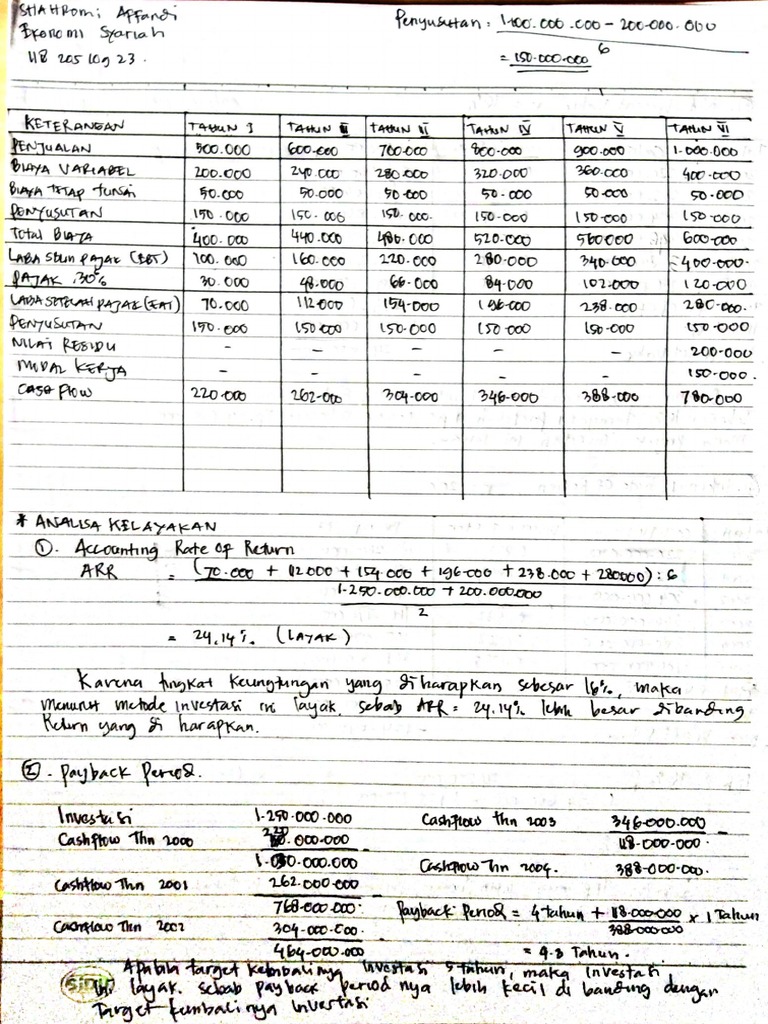 SHAHROMI AFFANDI
Ekonomi Syariah
118 205 109 23.
Penyusutan = 1.100.000.000 - 200.000.000
6
= 150.000.000
KETERANGAN TAHUN I TAHUN II TAHUN III TAHUN IV TAHUN V TAHUN VI
PENJUALAN 500.000 600.000 700.000 800.000 900.000 1.000.000
BIAYA VARIABEL 200.000 240.000 280.000 320.000 360.000 400.000
BIAYA TETAP TUNAI 50.000 50.000 50.000 50.000 50.000 50.000
PENYUSUTAN 150.000 150.000 150.000. 150.000 150.000 150.000
TOTAL BIAYA 400.000 440.000 480.000 520.000 560000 600.000
LABA SBLM PAJAK (EBT) 100.000 160.000 220.000 280.000 340.000 400.000
PAJAK 30% 30.000 48.000 66.000 84.000 102.000 120.000
LABA SETELAH PAJAK (EAT) 70.000 112000 154.000 196.000 238.000 280.000.
PENYUSUTAN 150.000 150000 150.000 150.000 150.000 150.000
NILAI RESIDU - - - - - 200.000
MODAL KERJA - - - - - 150.000.
CASH FLOW 220.000 262.000 304.000 346.000 388.000 780.000
* ANALISA KELAYAKAN
①. Accounting Rate Of Return
ARR = (70.000 + 112000 + 154.000 + 196.000 + 238.000 + 280000) : 6
1.250.000.000 + 200.000.000
2
= 24,14%. (LAYAK)
Karena tingkat keuntungan yang di harapkan sebesar 16%, maka
menurut metode investasi ini layak. sebab ARR = 24,14% lebih besar dibanding
Return yang di harapkan.
②. Payback Period.
Investasi 1.250.000.000 Cashflow Thn 2003 346.000.000
Cashflow Thn 2000 220.000.000 - 118.000.000.
1.030.000.000 Cashflow Thn 2004. 388.000.000.
Cashflow Thn 2001 262.000.000
768.000.000. Payback Period = 4 tahun + 118.000.000 x 1 Tahun
388.000.000
Cashflow Thn 2002 304.000.000
464.000.000 = 4.3 Tahun.
Apabila target kembalinya Investasi 5 tahun, maka Investasi
SIDU
ini layak. sebab payback period nya lebih kecil di banding dengan
Target kembalinya Investasi